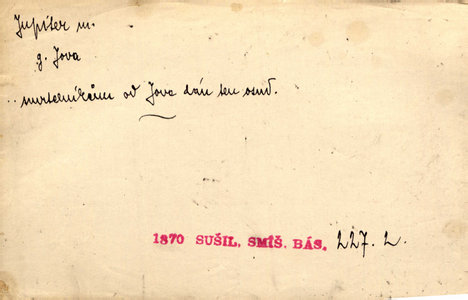 Jupiter m.
g. Jova
smrtelníkům od Jova dán ten osud.
1870 SUŠIL, SMÍŠ. BÁS. 227. 2.